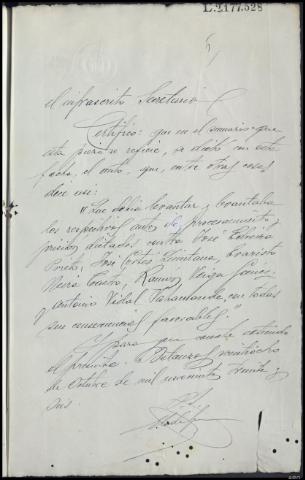 L.2177.528
El infrascrito Secretario
Certifico: que en el sumario que
esta pieza se refiere, se dictó con esta
fecha, el auto, que, entre otras cosas
dice así:
"Que debía levantar y levantaba
los respectivos autos de procesamiento y
prisión dictados contra José
José Cortés Quintana, Evaristo
Neira Castro, Ramón Veiga
y Antonio Vidal Taramundi, con todas
sus consecuencias favorables."
Y para que conste extiendo
el presente. Betanzos veintiocho
de Octubre de mil novecientos treinta y
dos.